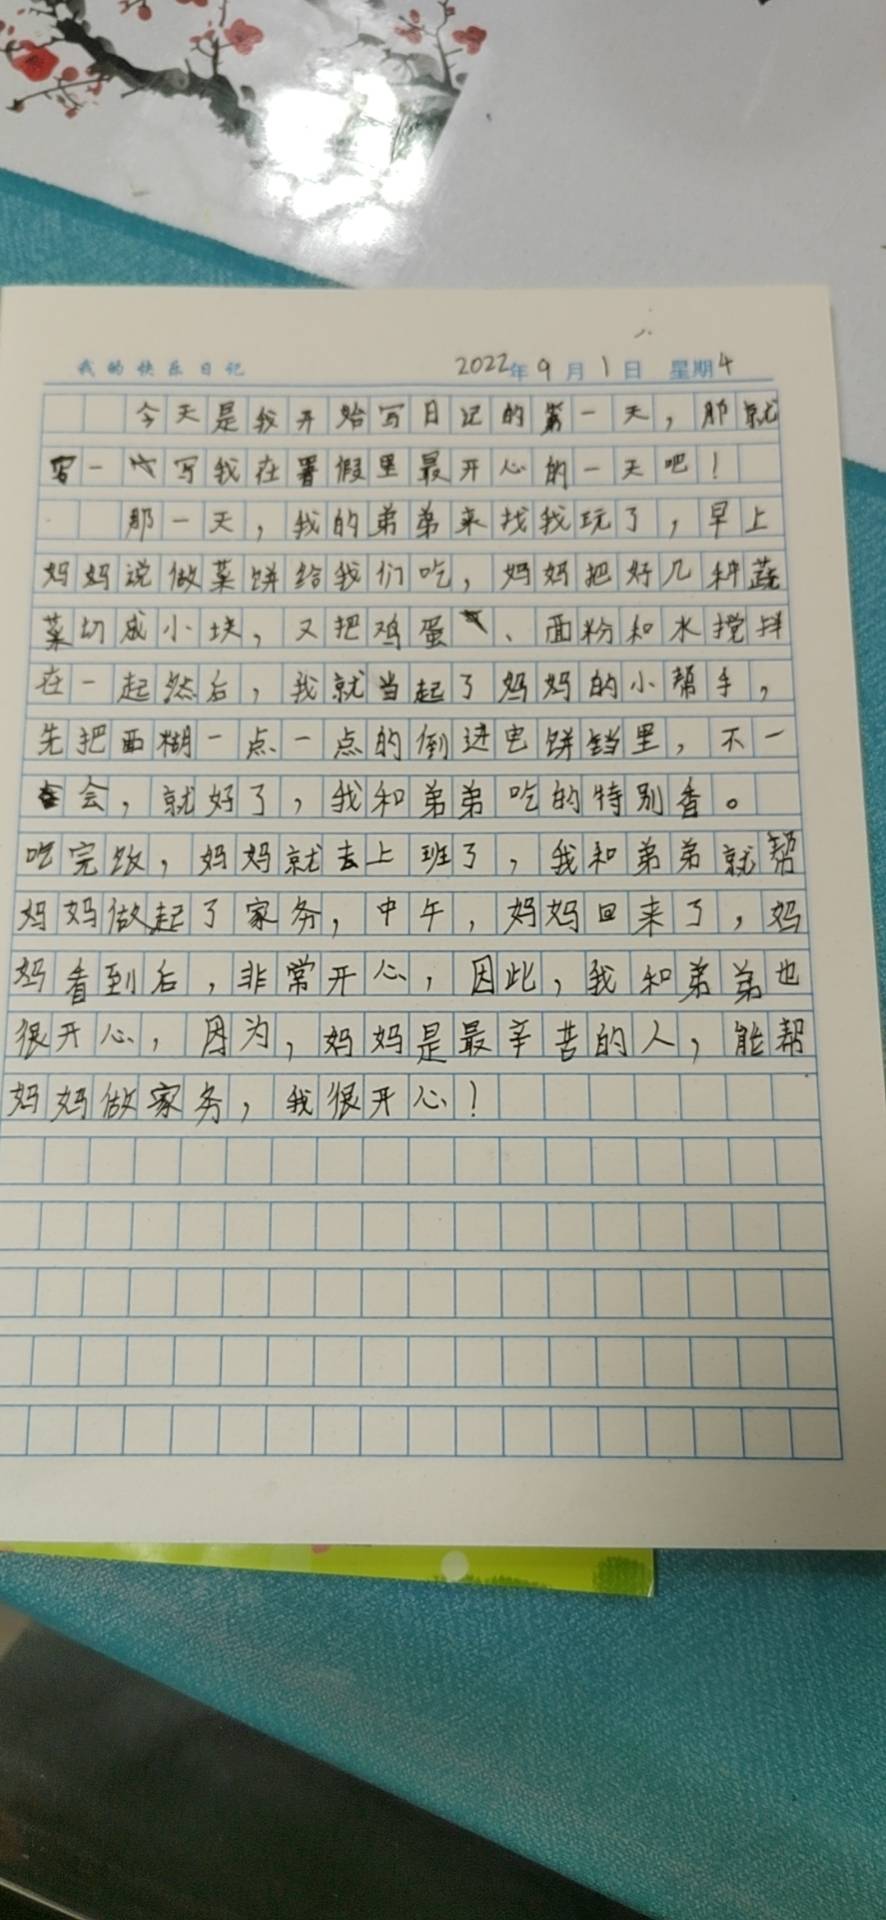 我的快乐日记 2022年9月1日 星期4
今天是我开始写日记的第一天，那就
写一写我在署假里最开心的一天吧！
那一天，我的弟弟来找我玩了，早上
妈妈说做菜饼给我们吃，妈妈把好几种蔬
菜切成小块，又把鸡蛋、面粉和水搅拌
在一起然后，我就当起了妈妈的小帮手，
先把面糊一点一点的倒进电饼铛里，不一
会，就好了，我和弟弟吃的特别香。
吃完饭，妈妈就去上班了，我和弟弟就帮
妈妈做起了家务，中午，妈妈回来了，妈
妈看到后，非常开心，因此，我和弟弟也
很开心，因为，妈妈是最辛苦的人，能帮
妈妈做家务，我很开心！